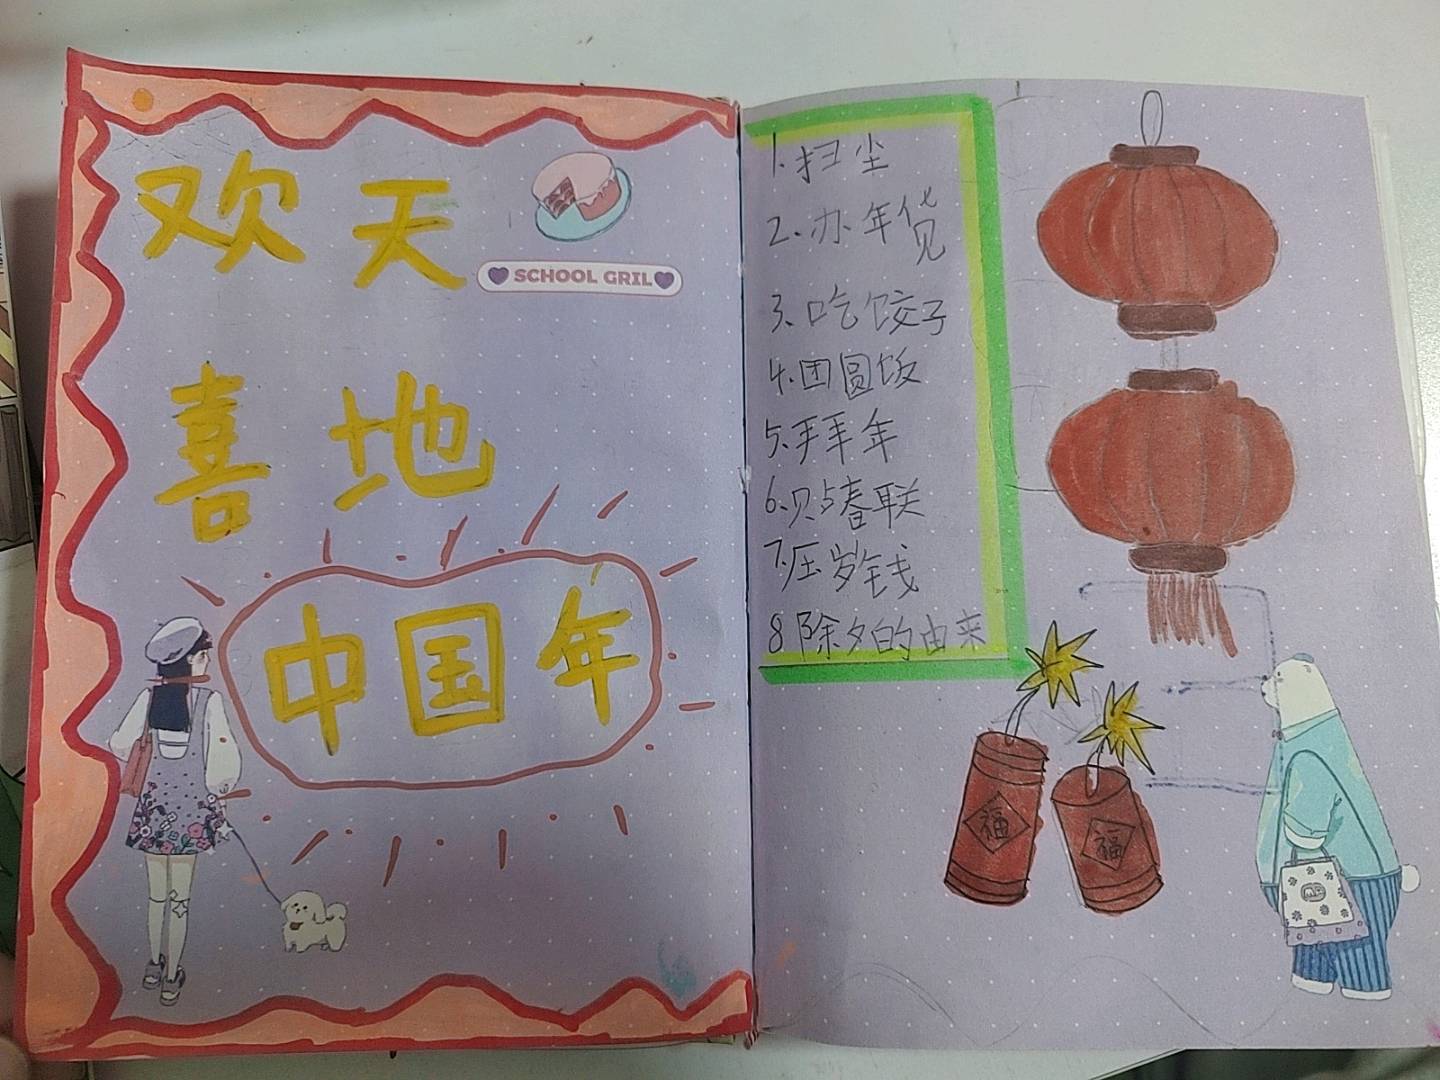 欢天
SCHOOL GRIL
喜地
中国年
1.扫尘
2.办年货
3.吃饺子
4.团圆饭
5.拜年
6.贴春联
7.压岁钱
8.除夕的由来
福
福